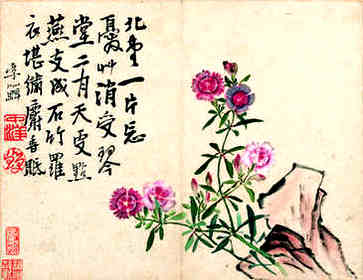 北堂一片忘
憂草消受琴
堂二月天更點
燕支成石竹羅
衣堪繡麝香眠
李鱓